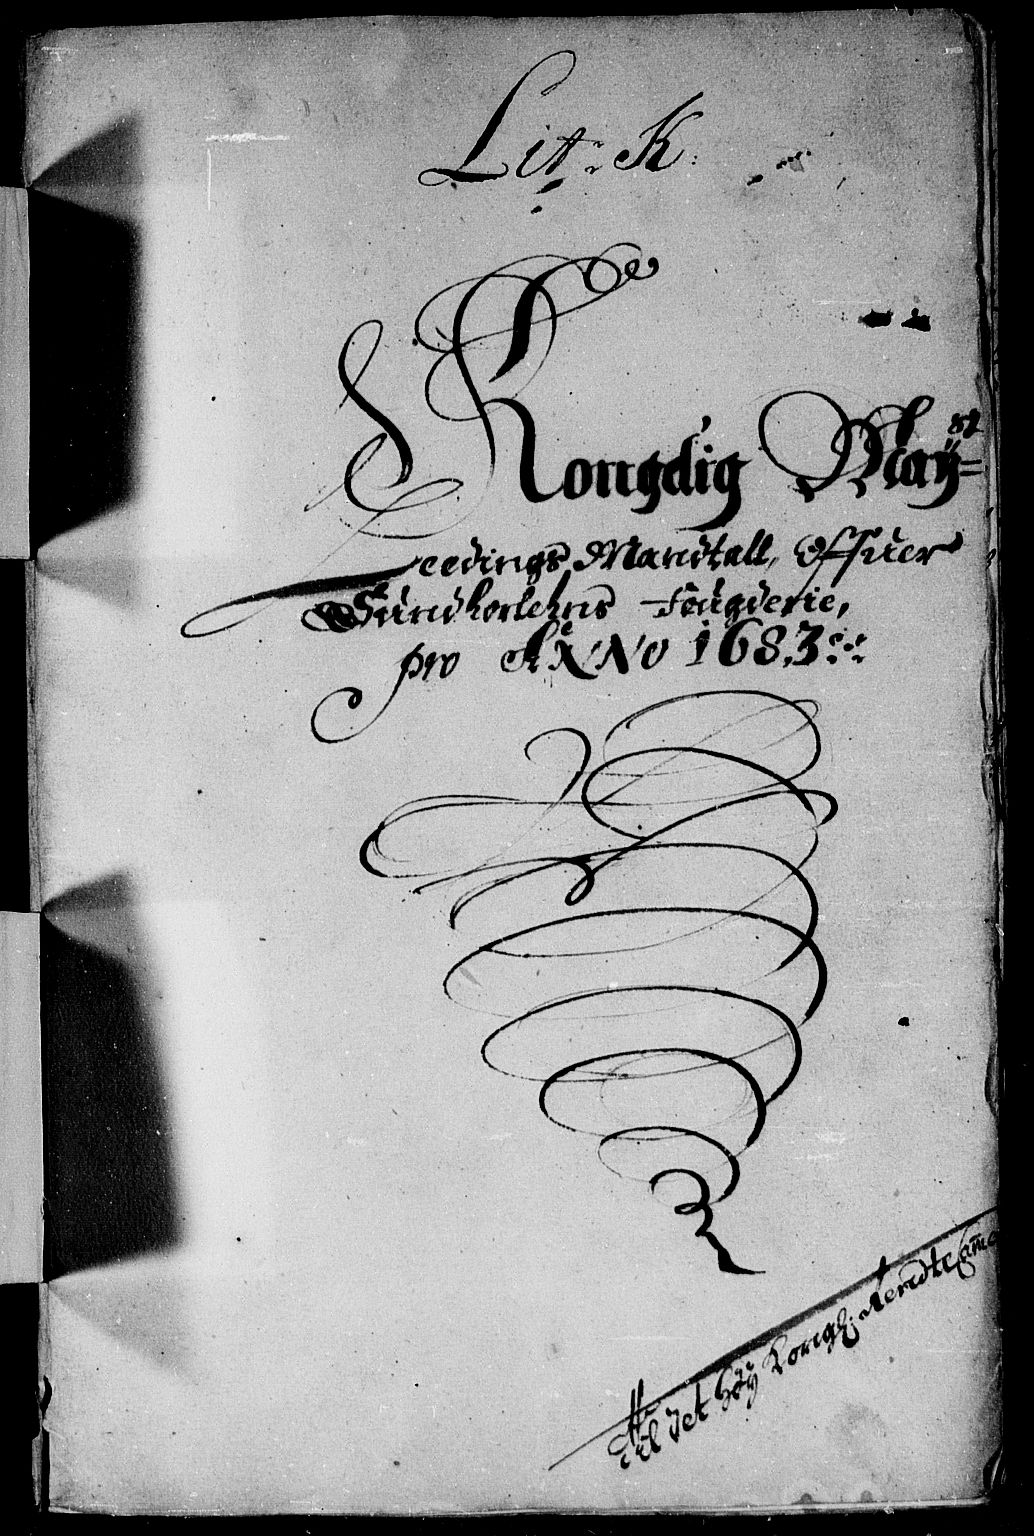 Lit: K:
Kongdig Mayst=
Leedings Mandtall, offuer
Sundhorlehns Fougderie,
pro ANNO 1683
Til det høy Kongl: Rendte Came